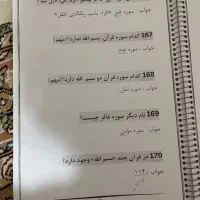 جواب : سوره علق «اقراء باسم ربک الذی خلق»
167 کدام سوره قرآن، بسم الله ندارد؟(مهم)
جواب : سوره توبه
168 کدام سوره قرآن دو بسم الله دارد؟(مهم)
جواب : سوره نمل
169 نام دیگر سوره غافر چیست؟
جواب : سوره مومن
170 در قرآن چند «بسم الله» وجود دارد؟
جواب : ۱۱۴